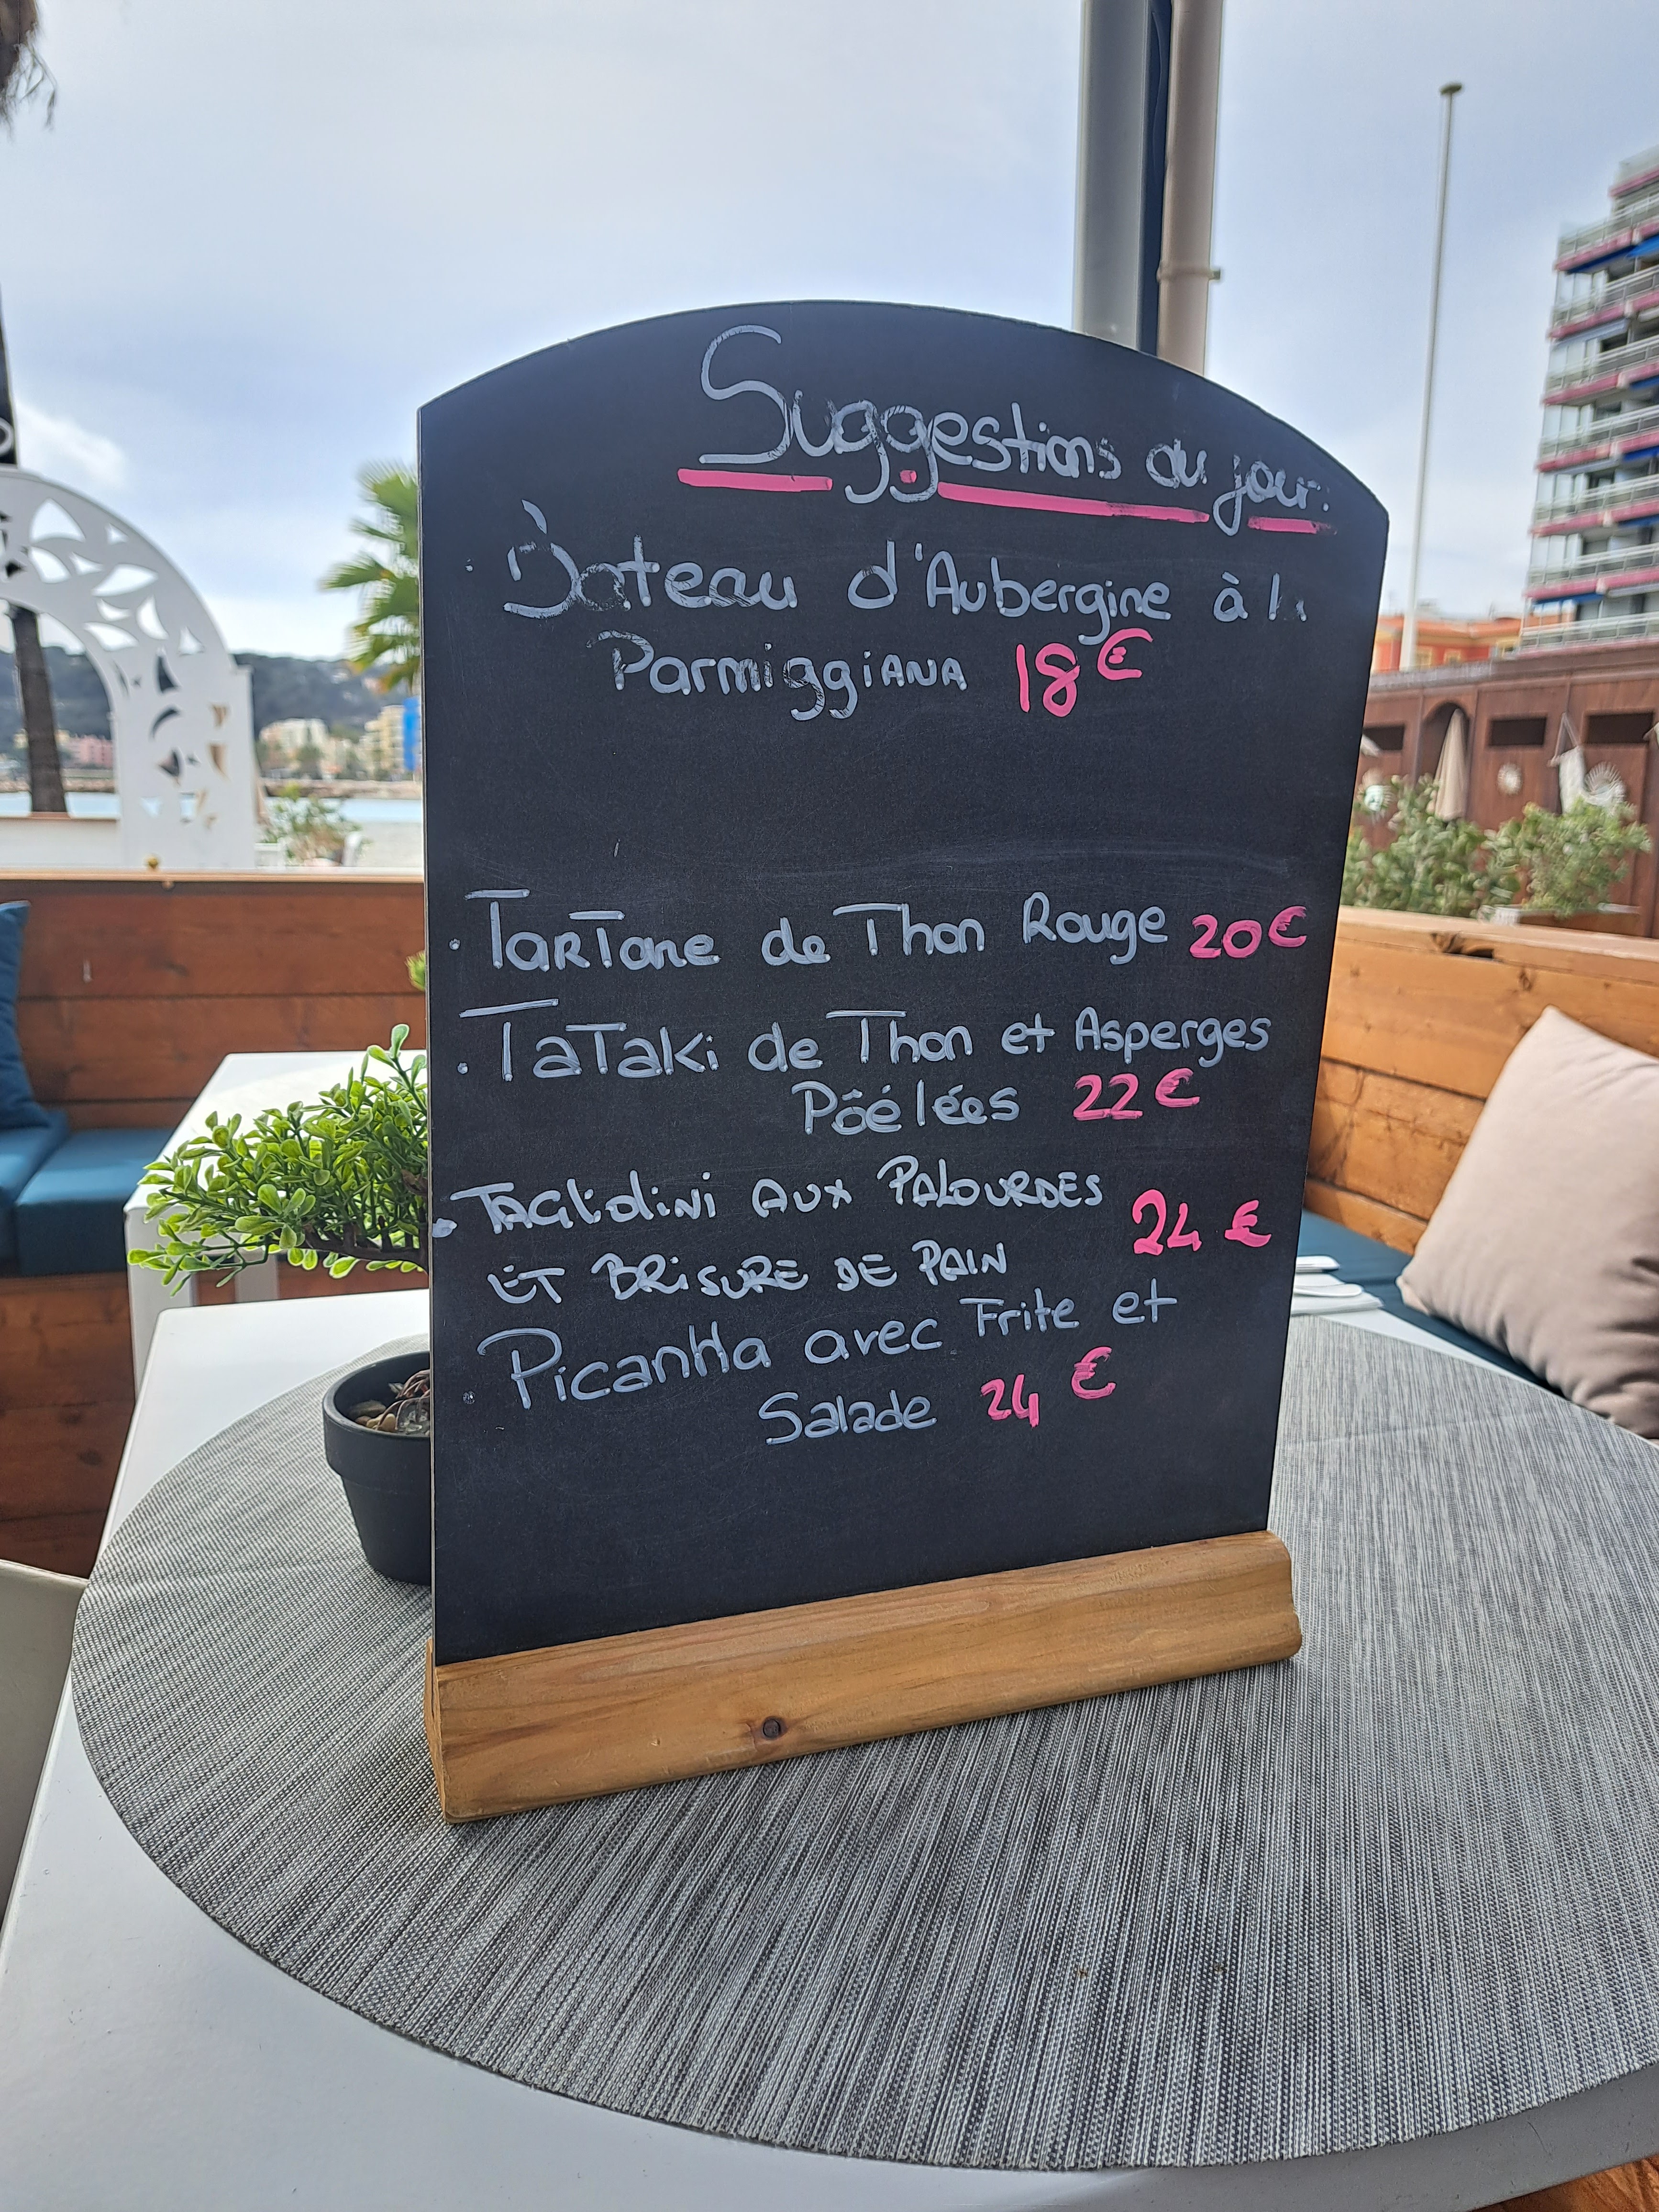 Suggestions du jour:
· Bateau d'Aubergine à la
Parmiggiana 18€
· Tartare de Thon Rouge 20€
· Tataki de Thon et Asperges
Pôélées 22€
· TAGliolini AUX PALOURDES
ET BRISURE DE PAIN 24€
· Picanha avec Frite et
Salade 24€